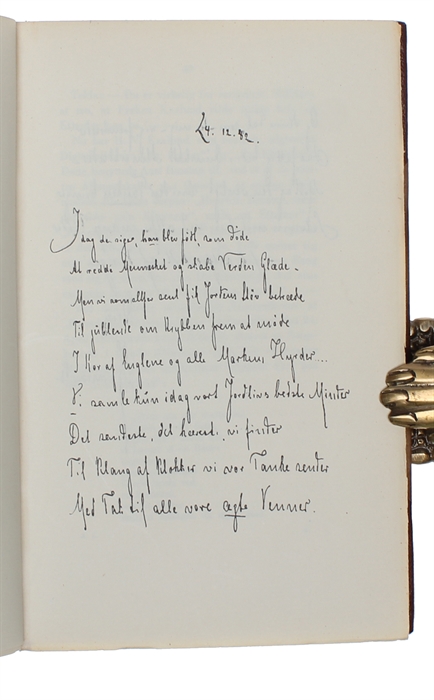 24. 12. 92.
I dag de siger, han blev født, som døde
At redde Mennesket og skabe Verden Glæde.
Men vi som altfor sent til Jordens Støv betræde
Til jublende om Krybben frem at møde
I Kor af Englene og alle Markens Hyrder...
Vi samle kun idag vort Jordlivs bedste Minder
Det sandeste, det kæreste, vi finder
Til Klang af Klokker vi vor Tanke sender
Med Tak til alle vore ægte Venner.